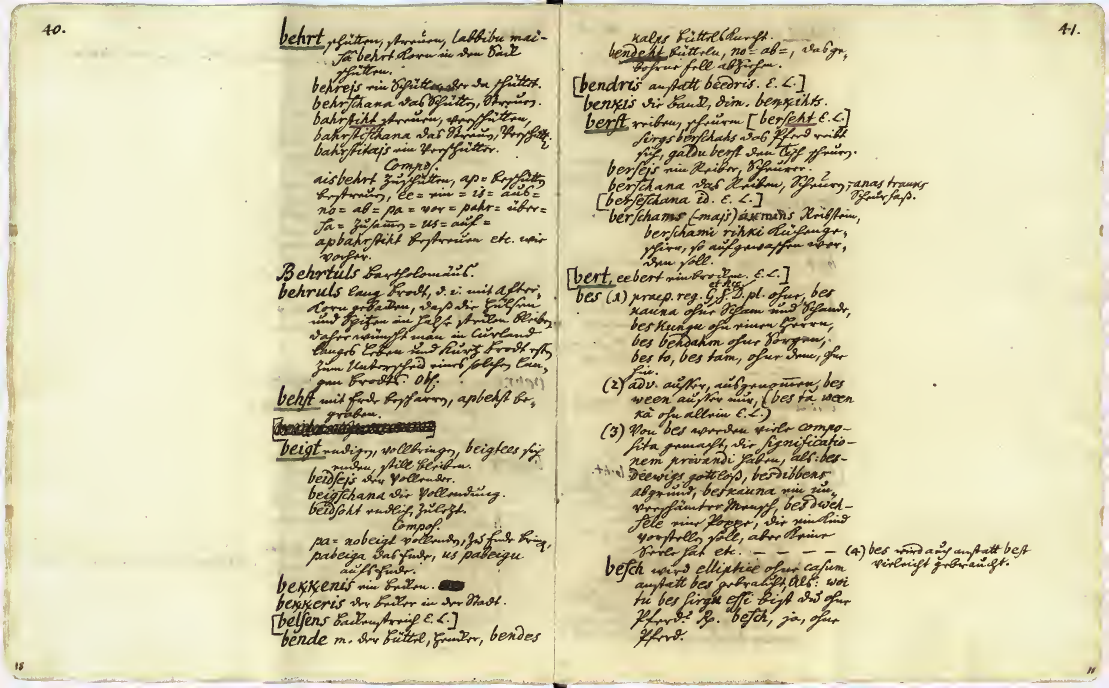 40.
behrt schütten, streuen, labbibu mai-
sa behrt Korn in den Sack
schütten.
behrejs ein Schütter, der da schüttet.
behrschana das Schütten, Streuen.
bahrstiht streuen, verschütten,
bahrstischana das Streuen, Verschütt.
bahrstitajs ein Verschütter.
Compos.
aisbehrt zuschütten, ap= beschütten
bestreuen, ee= ein= is= aus=
no= ab= pa= vor= pahr= über=
sa= zusammen= us= auf=
apbahrstiht bestreuen etc. wie
vorher.
Behrtuls Bartholomäus.
behruls lang Brodt, d. i. mit After-
Korn gebacken, daß die Hülsen
und Spitzen im Halse stecken bleiben
daher wünscht man in Curland
langes Leben und kurtz Brodt
zum Unterscheid eines solchen lan-
gen Brodts.
behst mit Erde bescharren, apbehst be-
graben.
beigt endigen, vollbringen, beigtees sich
enden, still bleiben.
beidsejs der Vollender.
beigschana die Vollendung.
beidsoht endlich, zuletzt.
Compos.
pa= nobeigt vollenden, zu Ende bring,
pabeiga das Ende, us pabeigu
aufs Ende.
bekkenis ein Becken.
bekkeris der Becker in der Stadt.
[belsens Backenstreich E. L.]
bende m. der Büttel, Henker, bendes
18
41.
kalps Büttelsknecht.
bendeht bütteln, no= ab=, das ge-
bohrne fell abziehen.
[bendris anstatt beedris. E. L.]
benkis die Banck, dim. benkihts.
berst reiben, scheuren [berseht E. L.]
sirgs berschahs das Pferd reibt
sich, galdu berst den Tisch scheuren.
bersejs ein Reiber, Scheurer.
berschana das Reiben, Scheuren, -anas trauks
Scheurfaß.
[berseschana id. E. L.]
berschams (-majs) akmins Reibstein,
berschami rihki Küchenge-
schirr, so aufgewaschen wer-
den soll.
[bert, eebert einbrocken. E. L.]
bes (1) praep. reg. G. S. D. pl. ohne, bes
kauna ohne Scham und Schande,
bes kungu ohn einen Herrn,
bes behdahm ohne Sorgen,
bes to, bes tam, ohne dem, ohn
hin.
(2) adv. ausser, ausgenommen, bes
ween ausser nur, (bes ta ween
kä ohn allein E. L.)
(3) Von bes werden viele compo-
sita gemacht, die significatio-
nem privandi haben, als: bes-
deewigs gottloß, besdibbens
abgrund, beskauna ein un-
verschämter Mensch, besdweh-
sele eine Poppe, die ein Kind
vorstellen soll, aber keine
Seele hat etc. - - - - (4) bes wird auch anstatt best
vieleicht gebraucht.
besch wird elliptice ohne casum
anstatt bes gebraucht, als: woi
tu bes sirga essi bist du ohne
Pferd? Rp. besch, ja, ohne
Pferd.